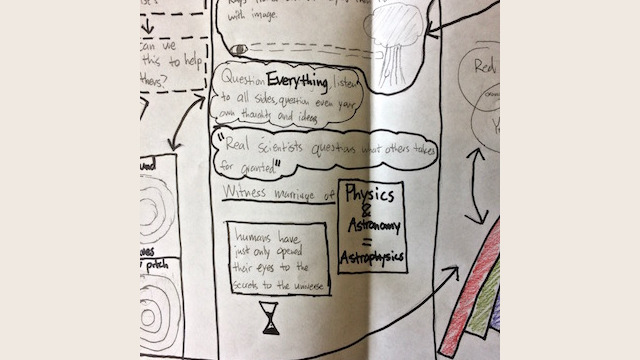 with image.
can we
this to help
thers?
Question Everything, listen
to all sides, question even your
own thoughts and ideas
"Real Scientists question what others takes
for granted"
Witness marriage of
Physics
&
Astronomy
=
Astrophysics
humans have
just only opened
their eyes to the
secrets to the universe
pitch
Red